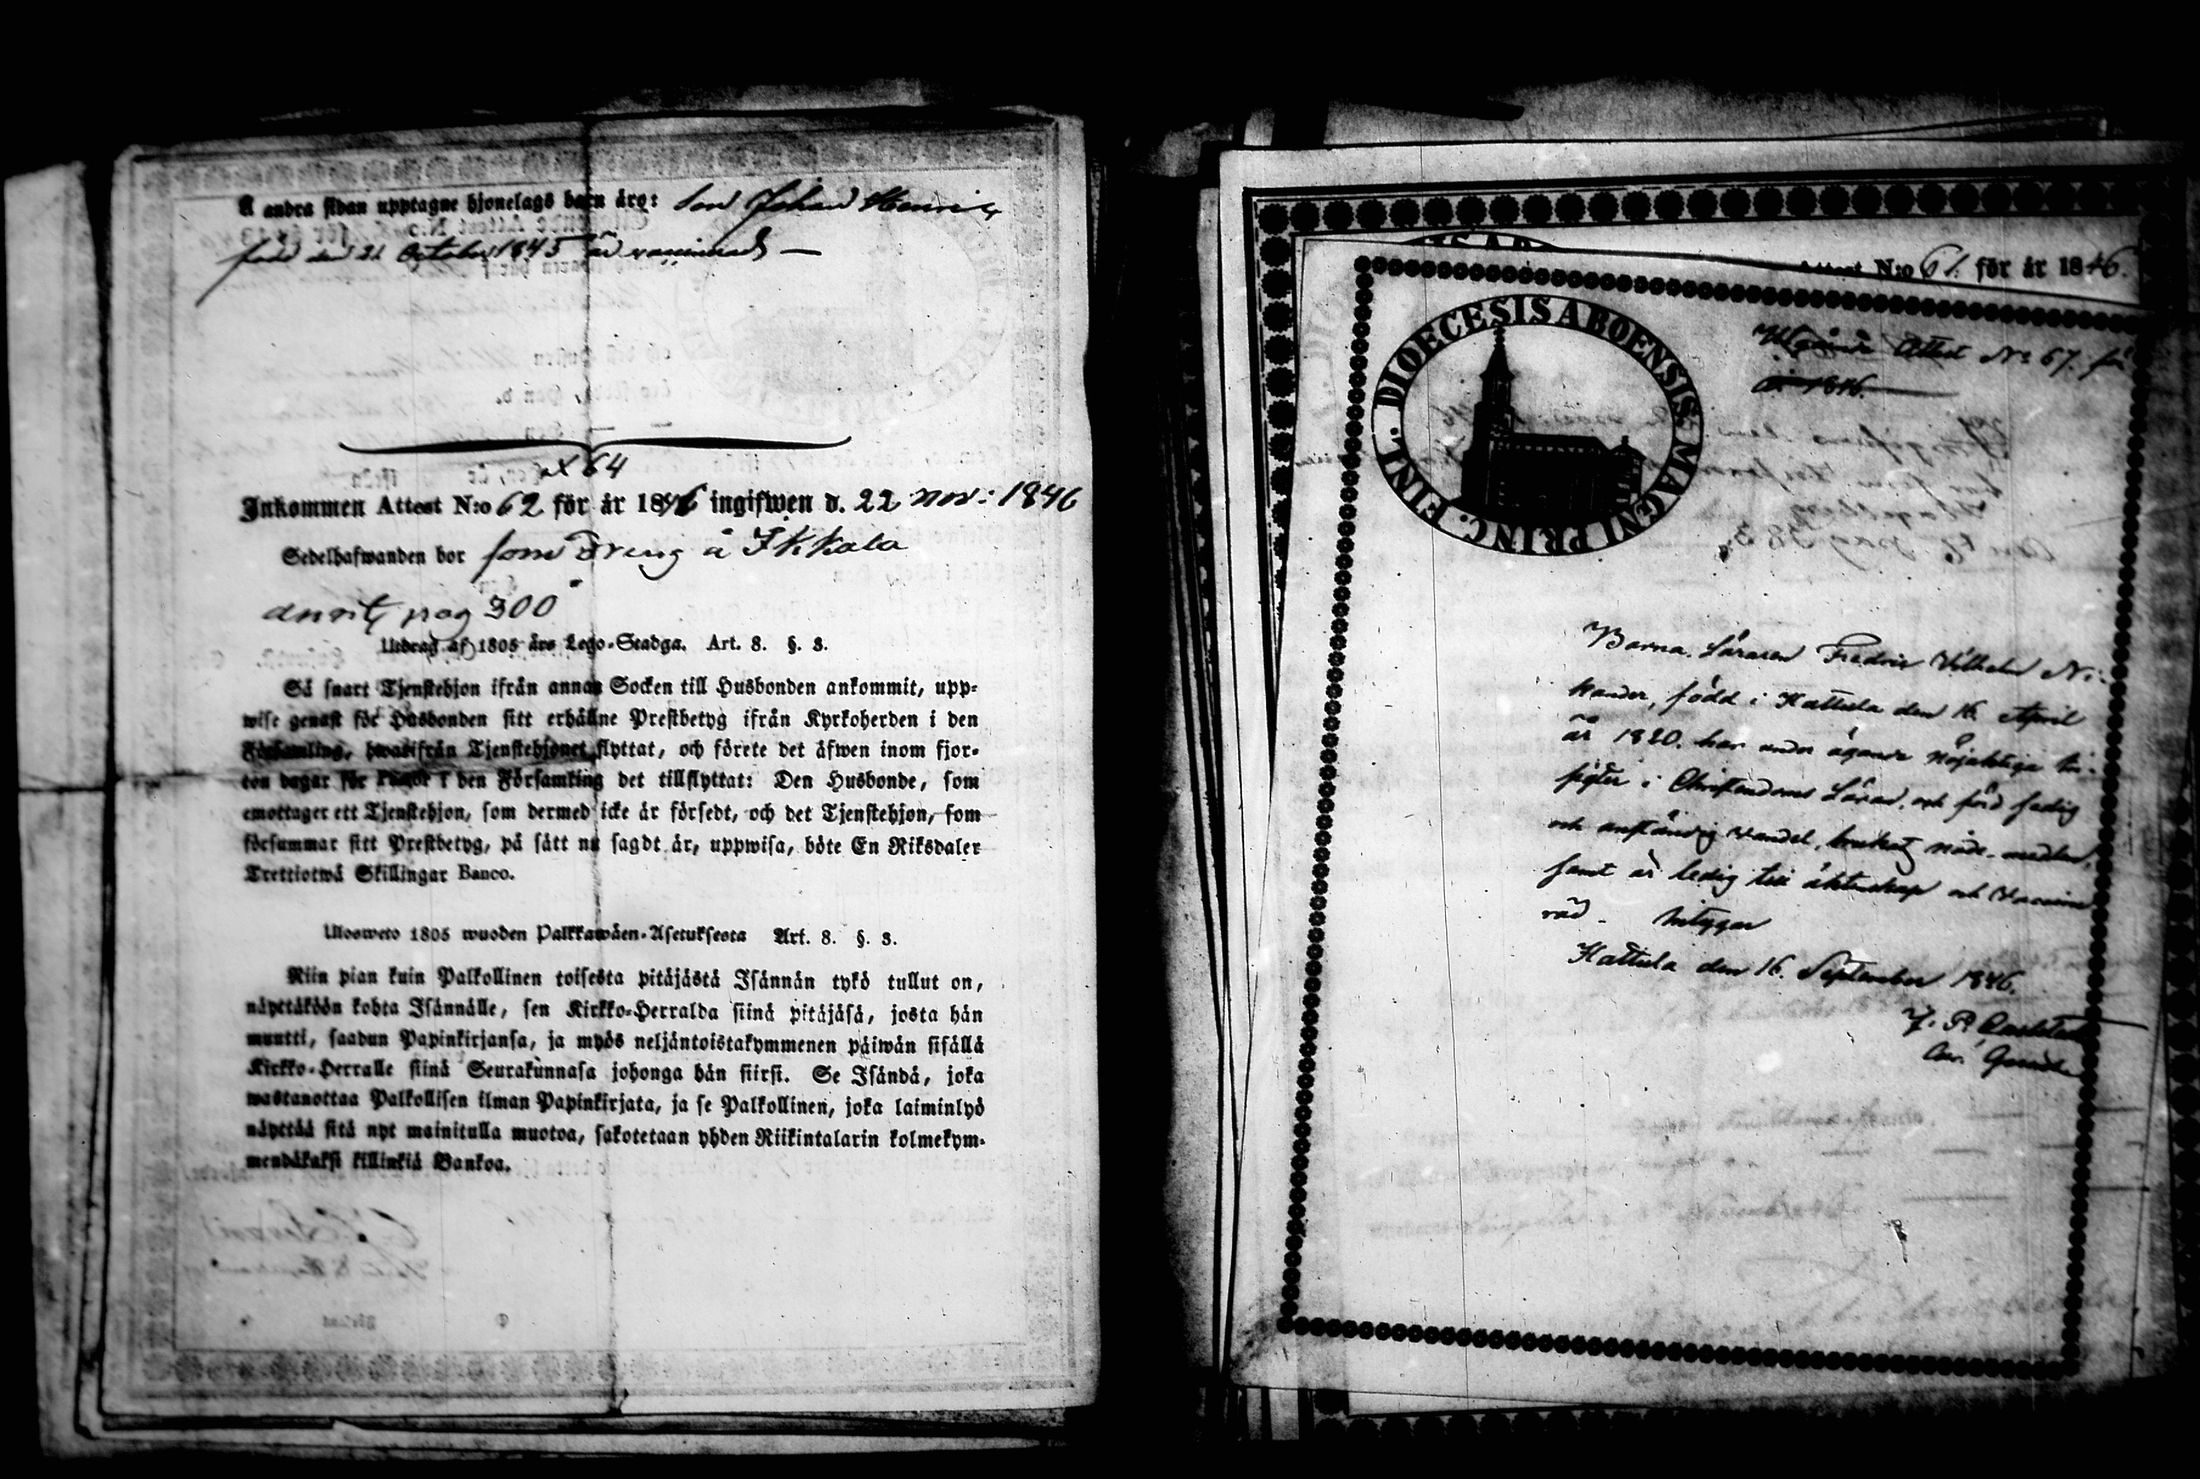 A andra sidan upptagne hjonelags barn äro: son Johan Henric
född den 21 October 1845 är vaccinerad —
64
Inkommen Attest N:o 62 för år 1846 ingifwen d. 22 nov: 1846
Sedelhafwanden bor som Dreng å Ikkala
pag 300
Utdrag af 1805 års Lego-Stadga. Art. 8. §. 3.
Så snart Tjenstehjon ifrån annan Socken till Husbonden ankommit, upp-
wise genast för Husbonden sitt erhållne Prestbetyg ifrån Kyrkoherden i den
Församling, hwarifrån Tjenstehjonet flyttat, och förete det äfwen inom fjor-
ton dagar för Pastor i den Församling det tillflyttat: Den Husbonde, som
emottager ett Tjenstehjon, som dermed icke är försedt, och det Tjenstehjon, som
försummar sitt Prestbetyg, på sätt nu sagdt är, uppwisa, böte En Riksdaler
Trettiotwå Skillingar Banco.
Ulosweto 1805 wuoden Palkkawäen-Asetuksesta Art. 8. §. 3.
Niin pian kuin Palkollinen toisesta pitäjästä Isännän tykö tullut on,
näyttäköön kohta Isännälle, sen Kirkko-Herralda siinä pitäjäsä, josta hän
muutti, saadun Papinkirjansa, ja myös neljäntoistakymmenen päiwän sisällä
Kirkko-Herralle siinä Seurakunnasa johonga hän siirsi. Se Isändä, joka
wastanottaa Palkollisen ilman Papinkirjata, ja se Palkollinen, joka laiminlyö
näyttää sitä nyt mainitulla muotoa, sakotetaan yhden Riikintalarin kolmekym-
mendäkaksi killinkiä Bankoa.
Attest N:o 61. för år 1846.
Utgående Attest No 67. för
år 1846.
DIOECESIS ABOENSIS MAGNI PRINC. FINL.
Barna Läraren Fredric Vilhelm Ni-
kander, född i Hattula den 16 April
år 1820. har under ägande nöjaktiga in-
sigter i Christendoms Läran, och förd sedig
och anständig vandel, brukat nåde-medlen,
samt är ledig till äktenskap och vaccine-
rad. Intygar
Hattula den 16. September 1846.